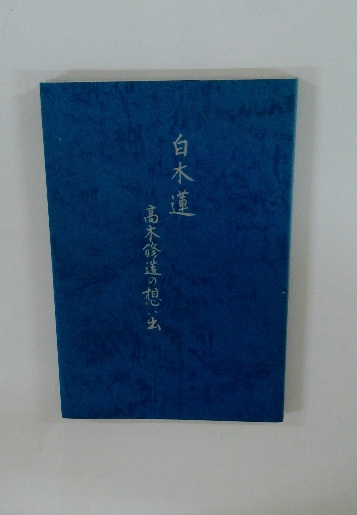 白木蓮
高木修造の想い出